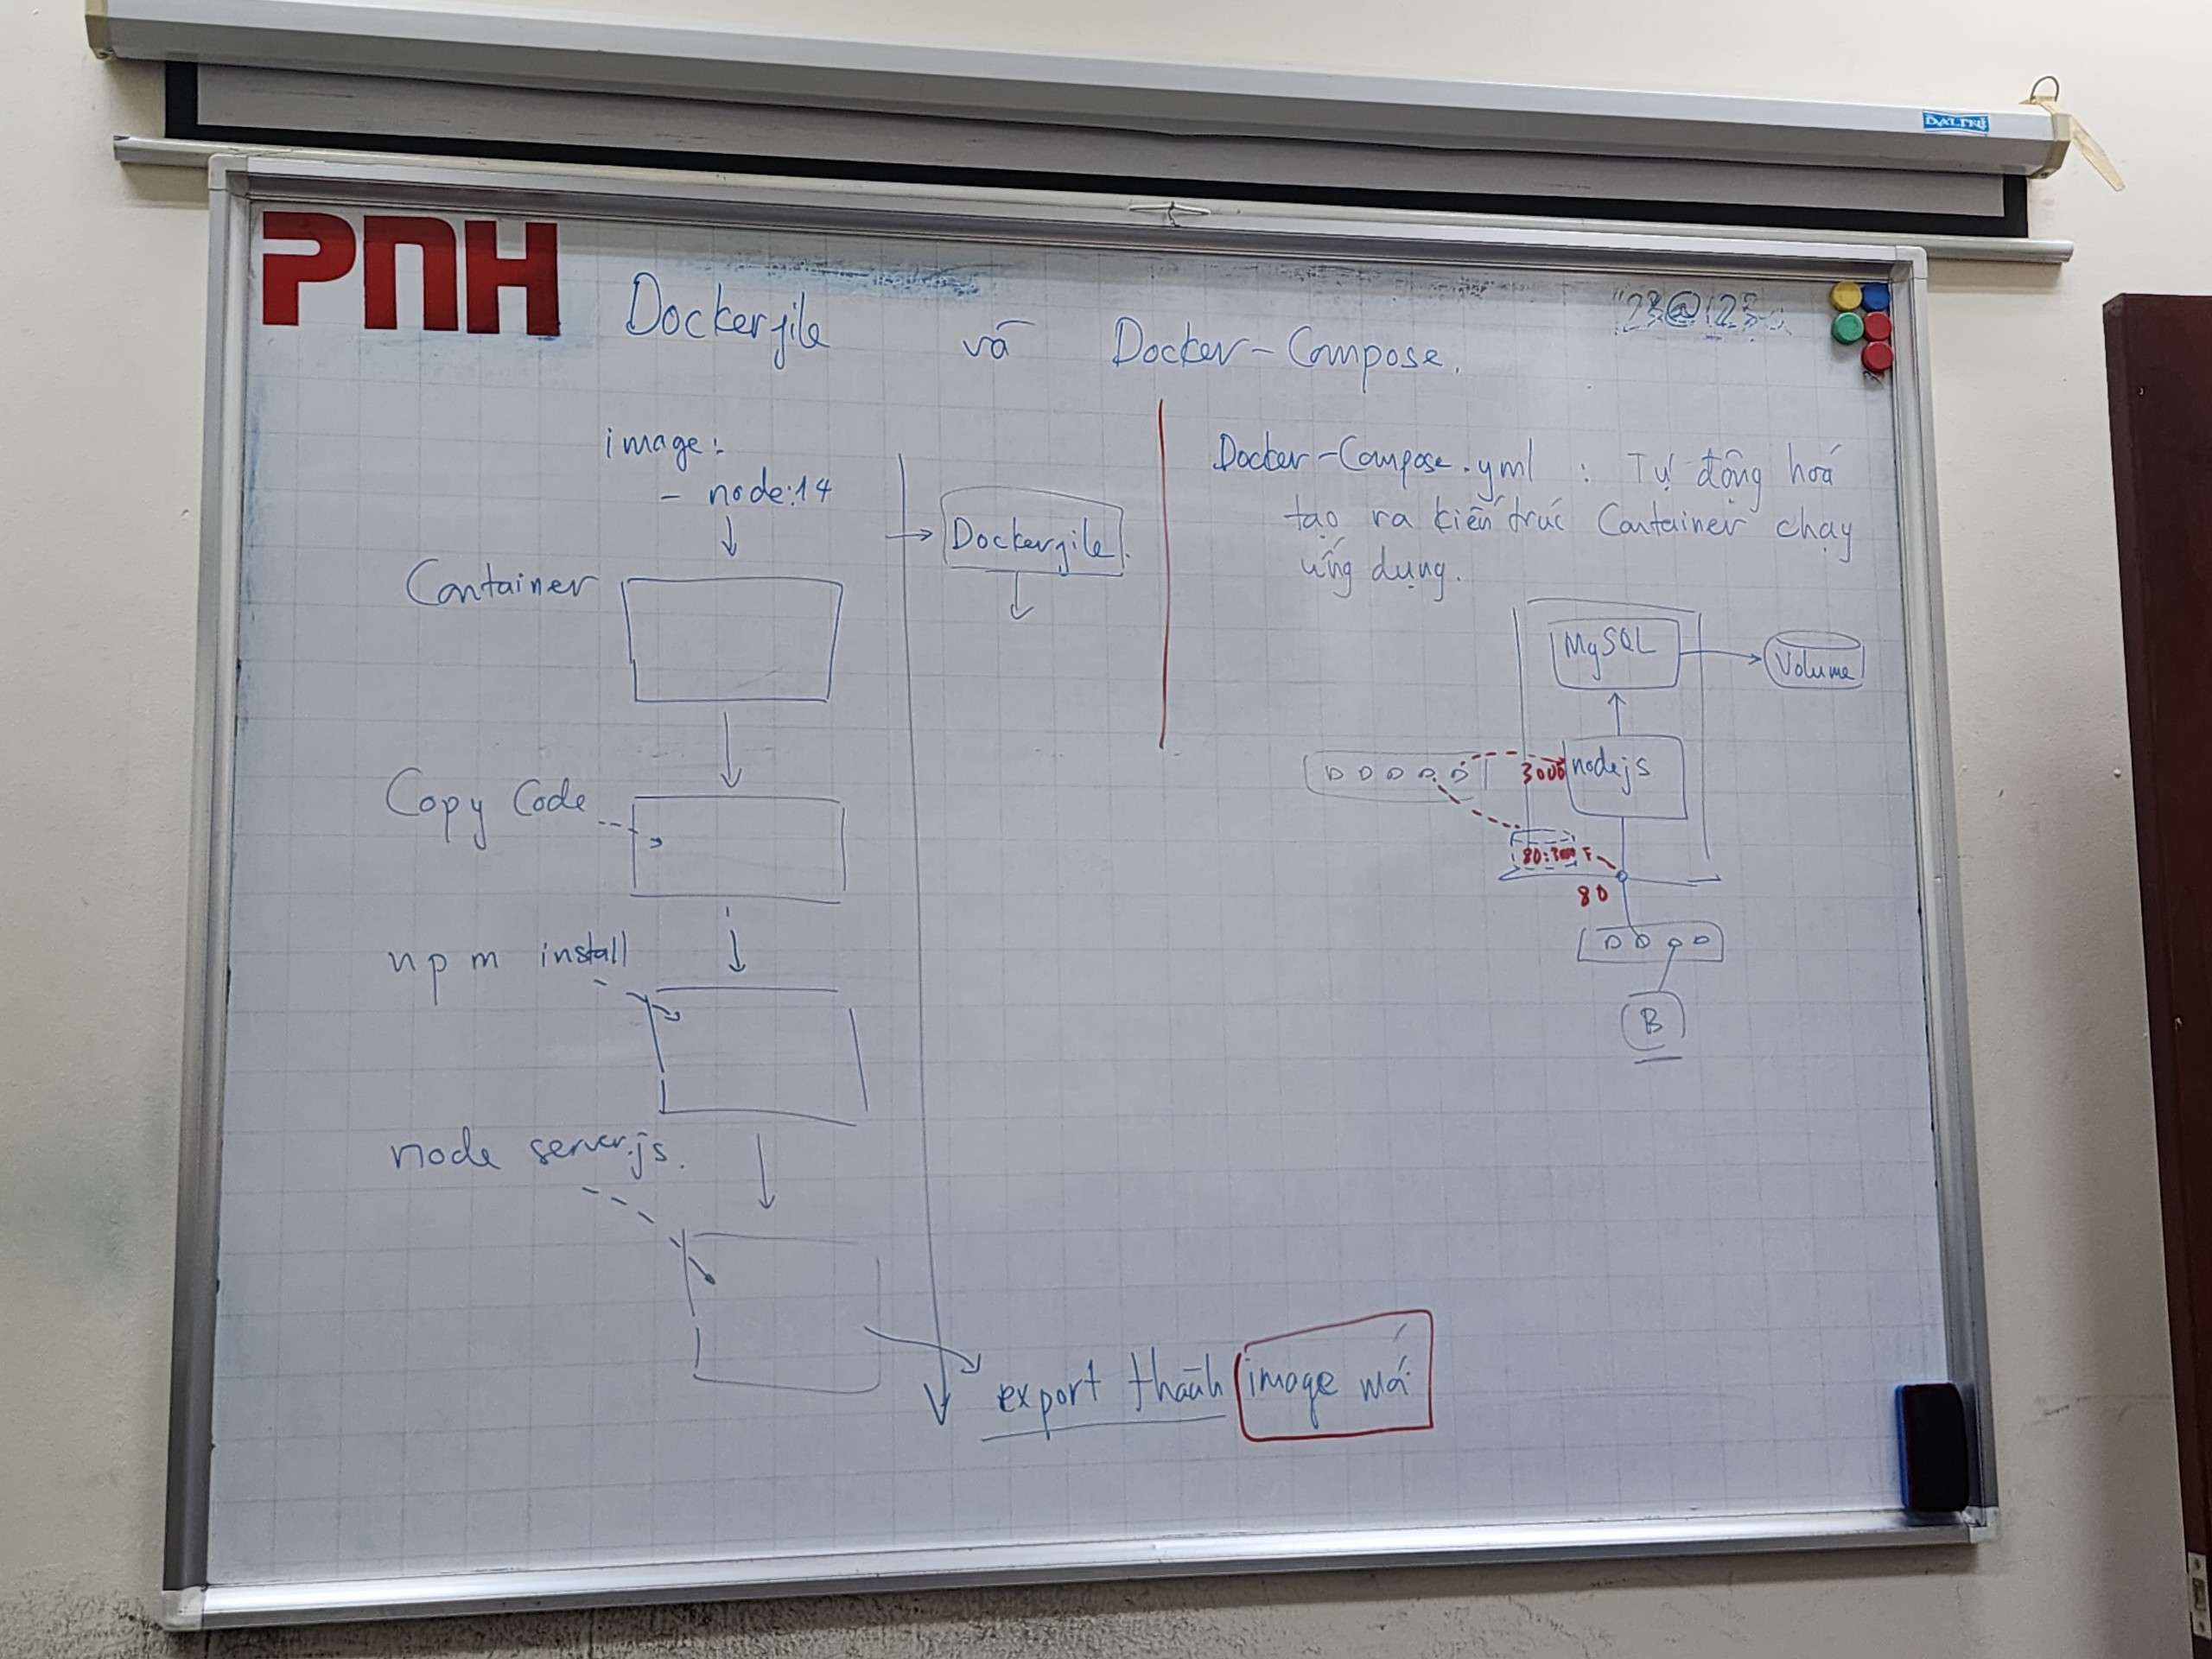 DALITE
PNH
123@123
Dockerfile và Docker-Compose.
image:
- node:14
Container
Copy Code
npm install
node server.js.
Dockerfile.
export thành image mới
Docker-Compose.yml : Tự động hoá
tạo ra kiến trúc Container chạy
ứng dụng.
MySQL
Volume
3000 nodejs
80:3000
80
B